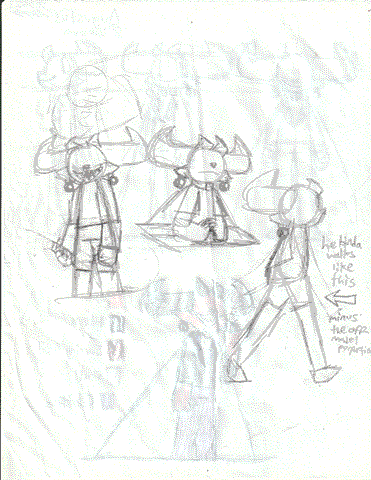 he kinda
walks
like
this
minus
the off
model
proportions